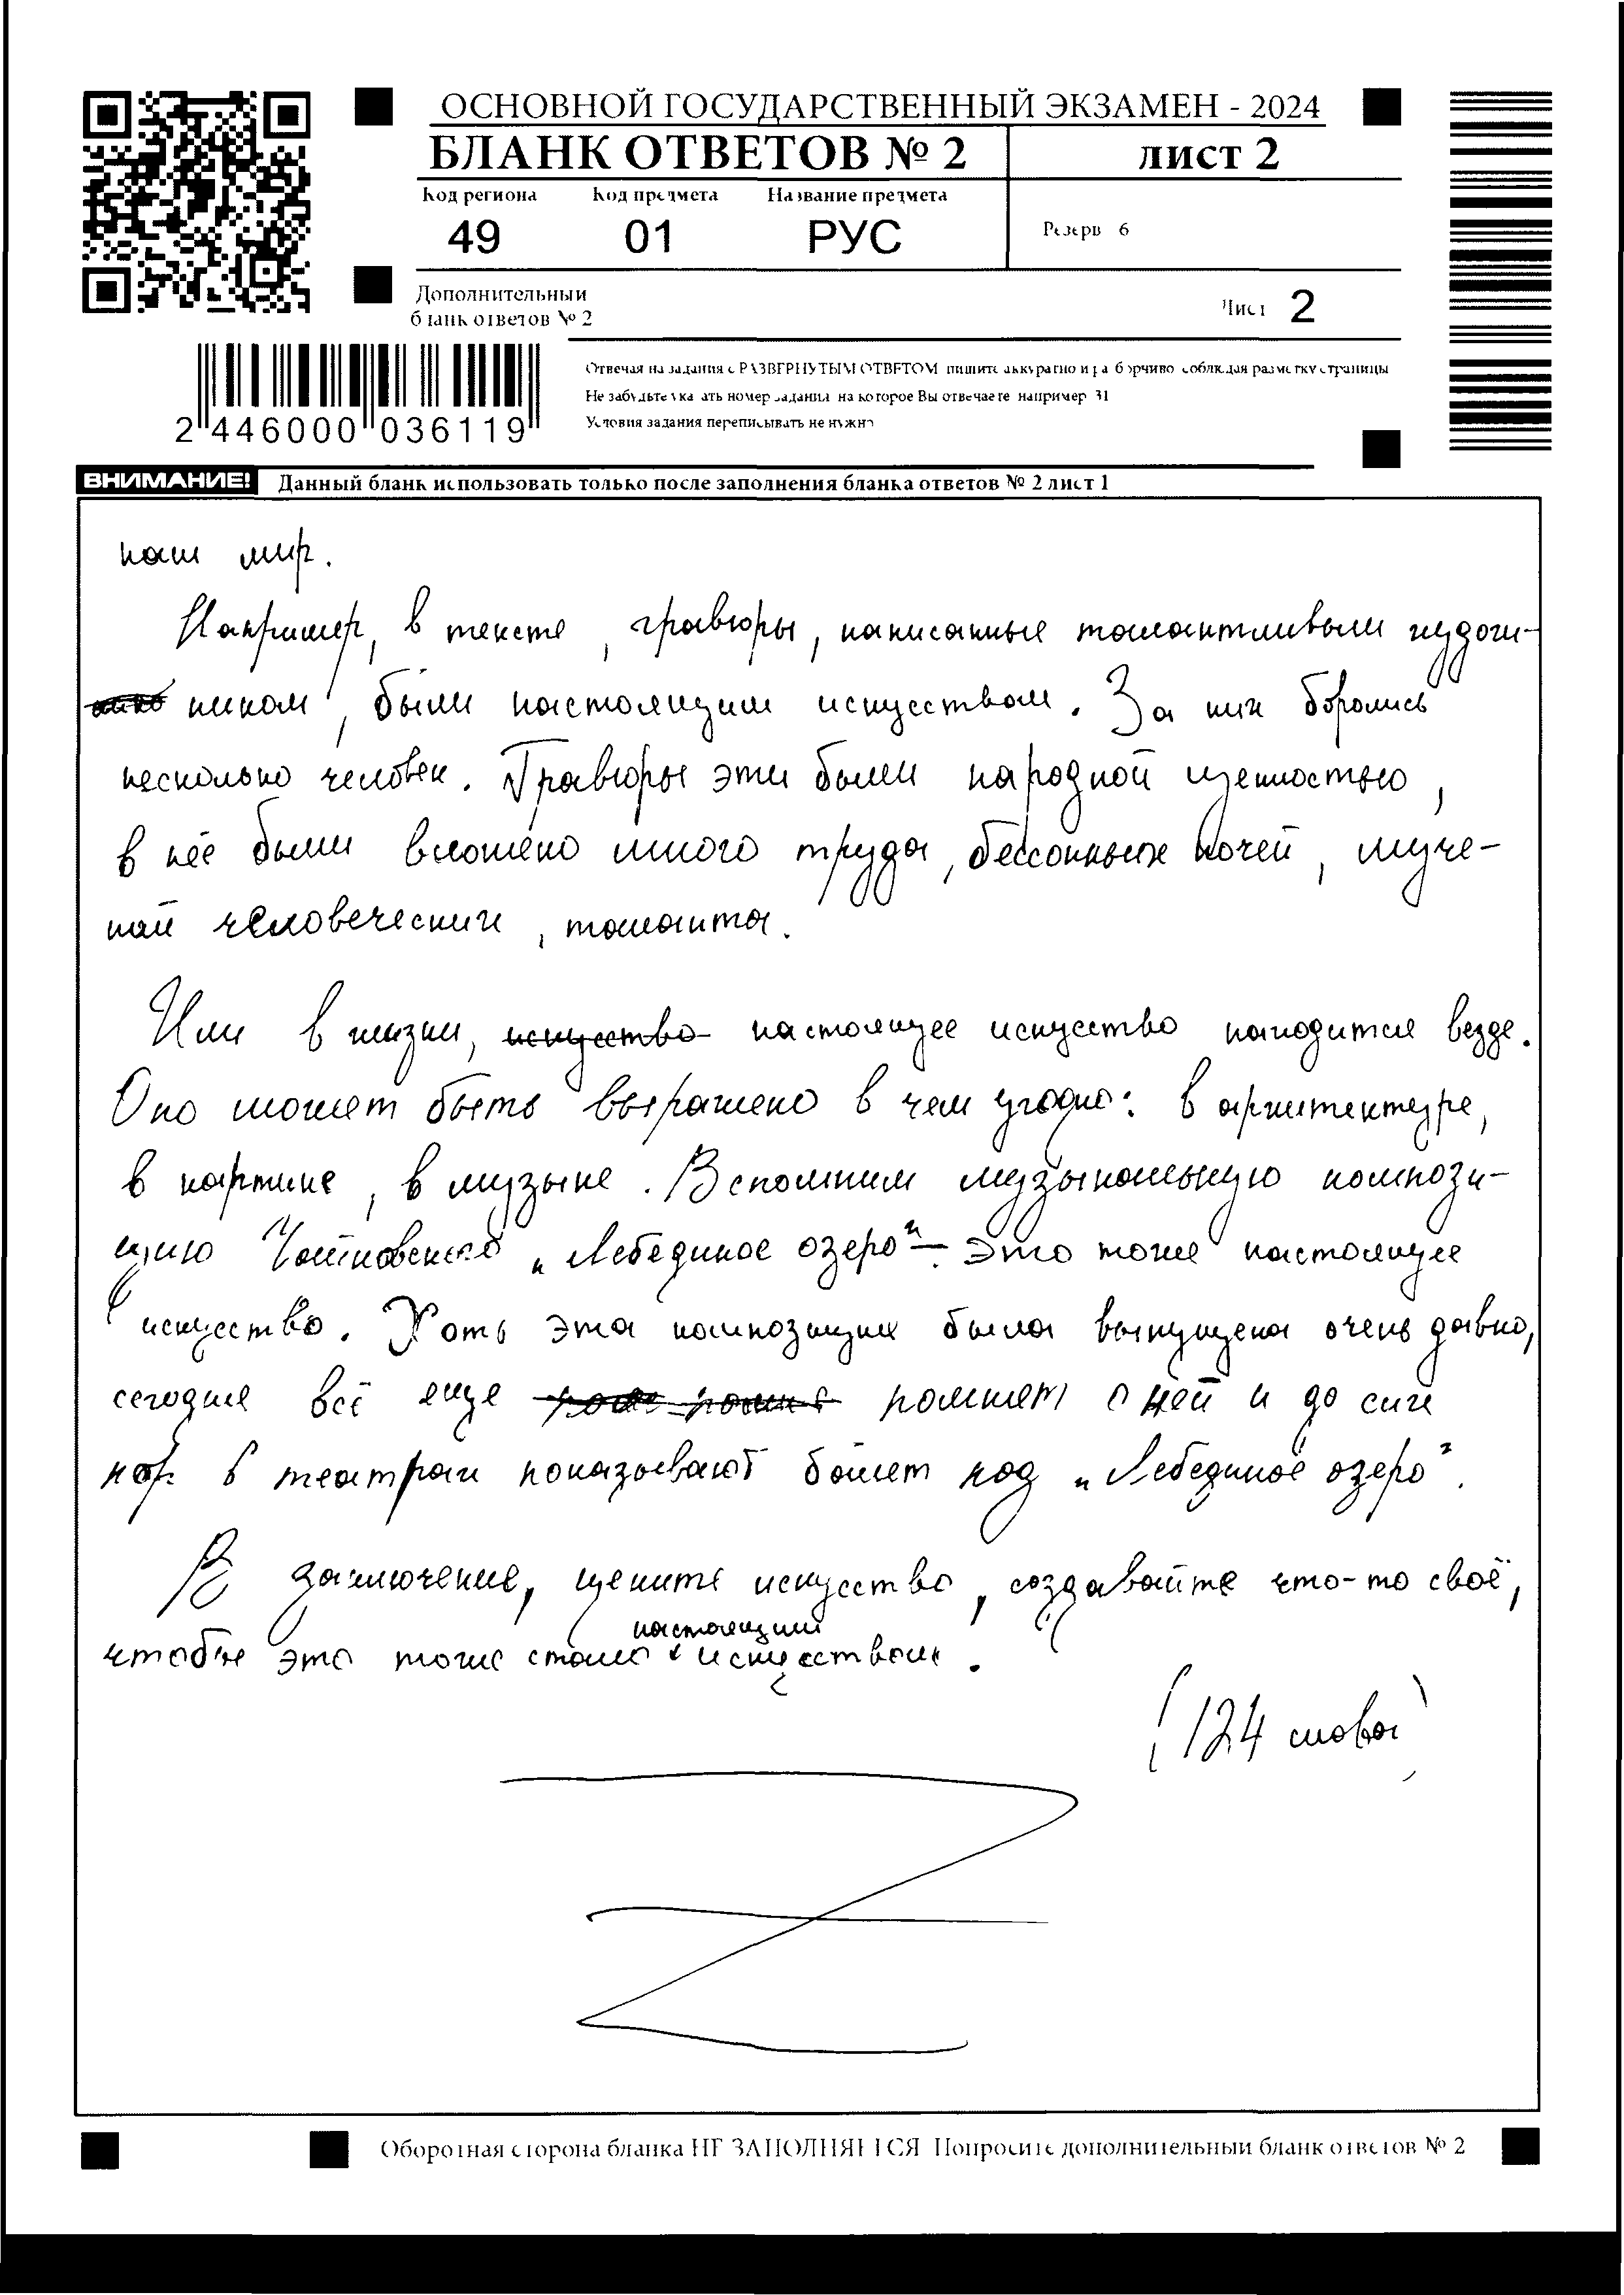 ОСНОВНОЙ ГОСУДАРСТВЕННЫЙ ЭКЗАМЕН - 2024
БЛАНК ОТВЕТОВ № 2
лист 2
Код региона Код предмета Название предмета
49 01 РУС
Резерв 6
Дополнительный
бланк ответов № 2
Лист 2
2 446000 036119
Отвечая на задания с РАЗВЕРНУТЫМ ОТВЕТОМ пишите аккуратно и разборчиво соблюдая разметку страницы
Не забудьте указать номер задания на которое Вы отвечаете например 31
Условия задания переписывать не нужно
ВНИМАНИЕ! Данный бланк использовать только после заполнения бланка ответов № 2 лист 1
наш мир.
Например, в тексте, гравюры, написанные талантливым худож-
ником, были настоящим искусством. За них боролись
несколько человек. Гравюры эти были народной ценностью,
в неё были вложено много труда, бессонных ночей, муче-
ний человеческих, таланта.
Или в жизни, искуство настоящее искуство находится везде.
Оно может быть выражено в чем угодно: в архитектуре,
в картине, в музыке. Вспомним музыкальную компози-
цию Чайковского „Лебединое озеро" - это тоже настоящее
искусство. Хоть эта композиция была выпущена очень давно,
сегодня всё еще помнят о ней и до сих
пор в театрах показывают балет под „Лебединое озеро".
В заключение, цените искусство, создавайте что-то своё,
настоящим
чтобы это тоже стало искусством.
(124 слова)
Оборотная сторона бланка НЕ ЗАПОЛНЯЕТСЯ Попросите дополнительный бланк ответов № 2